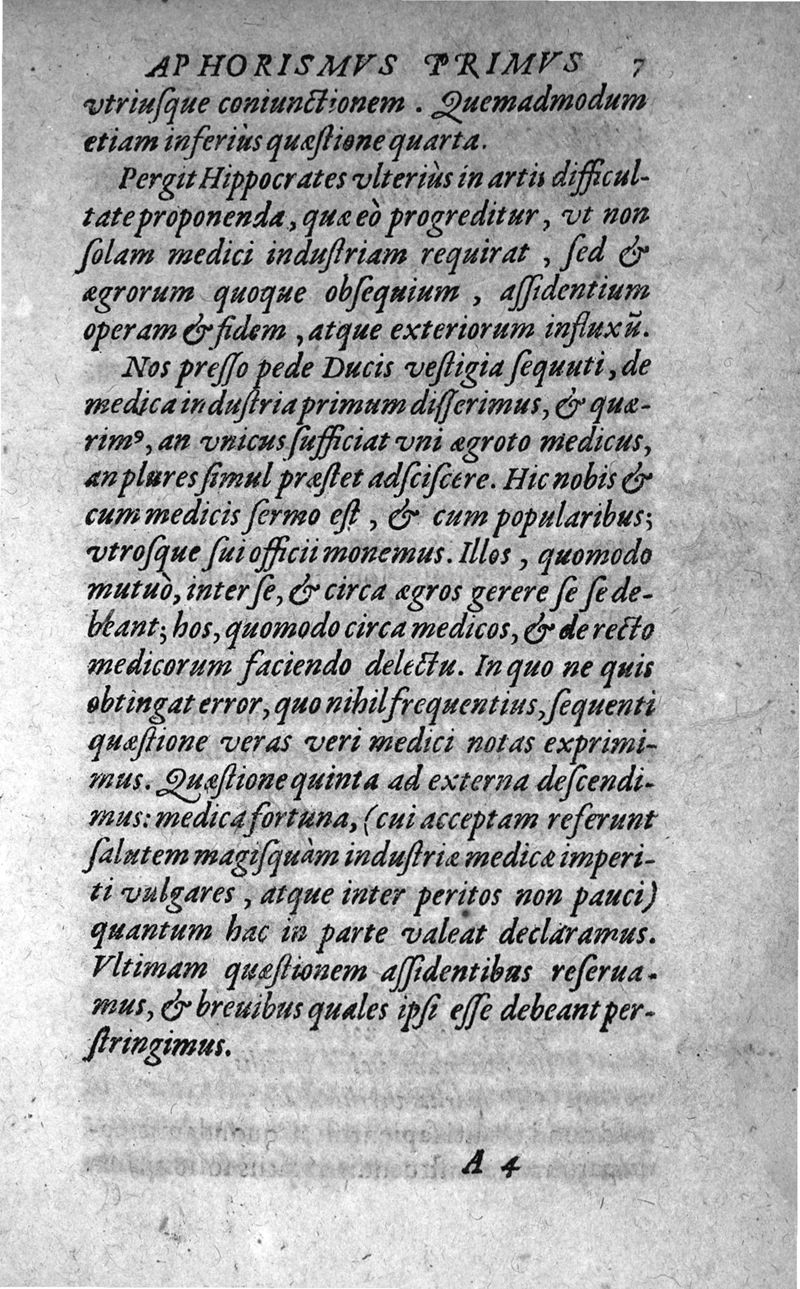 APHORISMVS PRIMVS 7
vtriuſque coniunctionem . Quemadmodum
etiam inferiùs quæſtione quarta.
Pergit Hippocrates vlteriùs in artis difficul-
tate proponenda, quæ eò progreditur, vt non
ſolam medici induſtriam requirat , ſed &
ægrorum quoque obſequium , aſſidentium
operam & fidem , atque exteriorum influxū.
Nos preſſo pede Ducis veſtigia ſequuti, de
medica induſtria primum diſſerimus, & quæ-
rimꝰ, an vnicus ſufficiat vni ægroto medicus,
an plures ſimul præſtet adſciſcere. Hic nobis &
cum medicis ſermo eſt , & cum popularibus;
vtroſque ſui officii monemus. Illos , quomodo
mutuò, inter ſe, & circa ægros gerere ſe ſe de-
beant; hos, quomodo circa medicos, & de recto
medicorum faciendo delectu. In quo ne quis
obtingat error, quo nihil frequentius, ſequenti
quæſtione veras veri medici notas exprimi-
mus. Quæſtione quinta ad externa deſcendi-
mus: medica fortuna, (cui acceptam referunt
ſalutem magiſquàm induſtriæ medicæ imperi-
ti vulgares , atque inter peritos non pauci)
quantum hac in parte valeat declaramus.
Vltimam quæſtionem aſſidentibus reſerua-
mus, & breuibus quales ipſi eſſe debeant per-
ſtringimus.
A 4